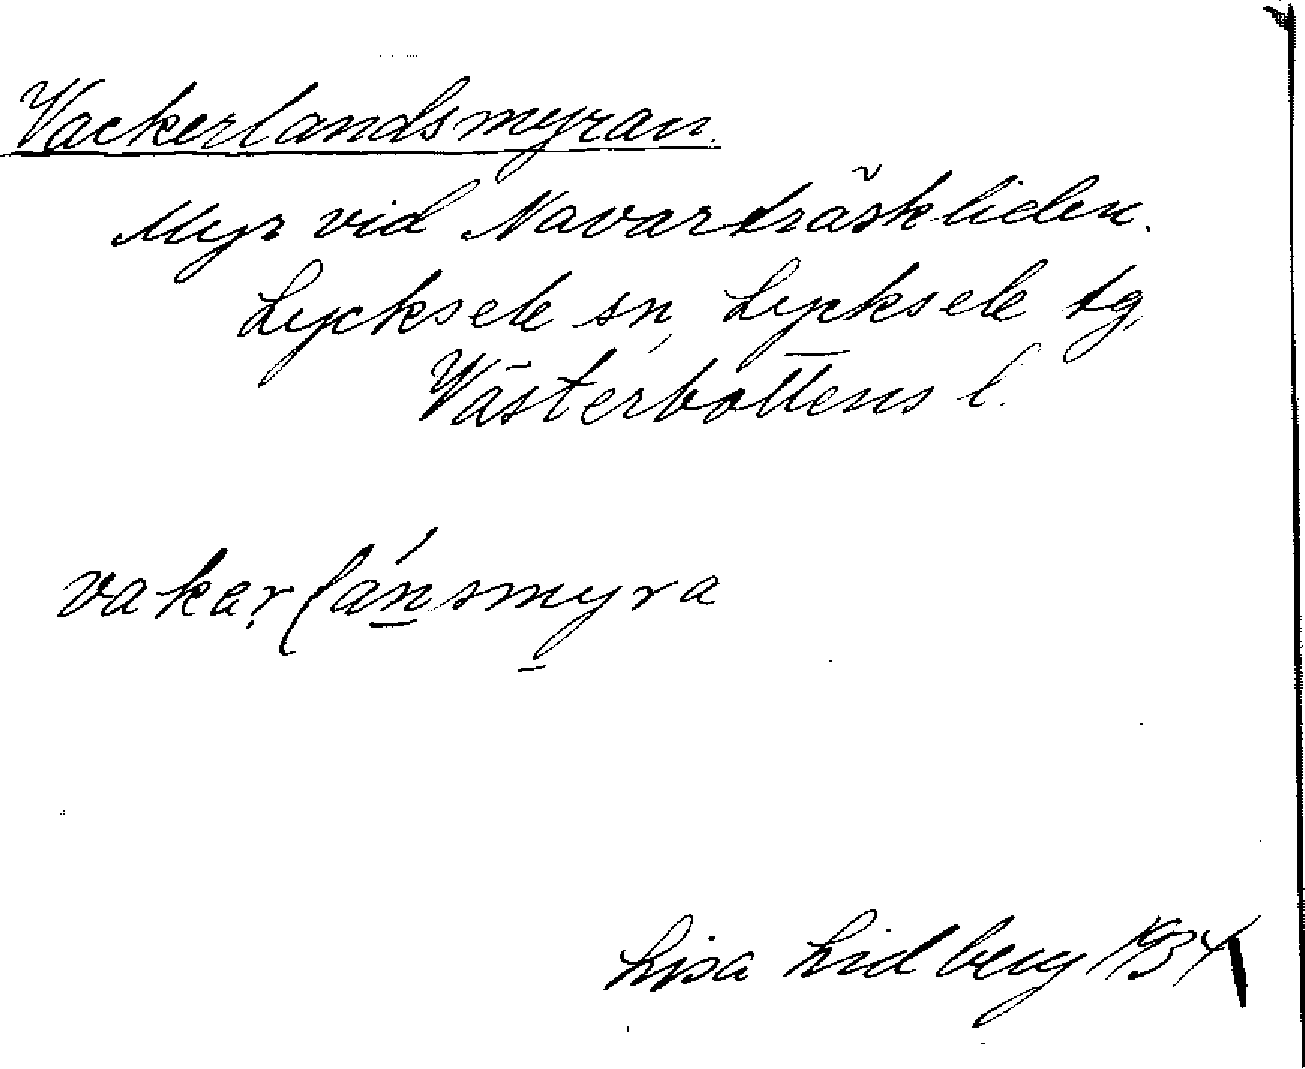 Vackerlandsmyran.
Myr vid Navarträskliden.
Lycksele sn, Lycksele tg,
Västerbottens l.
vakar lánsmyra
Lisa Lidberg 1934